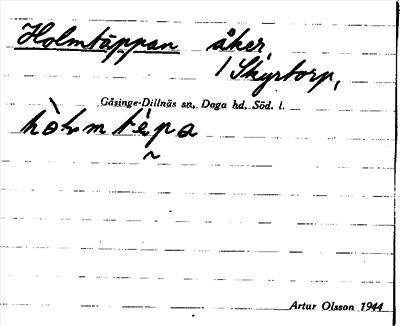 Holmtäppan åker,
/ Skyrtorp,
Gåsinge-Dillnäs sn, Daga hd, Söd. l.
hòlmtépa
~
Artur Olsson 1944